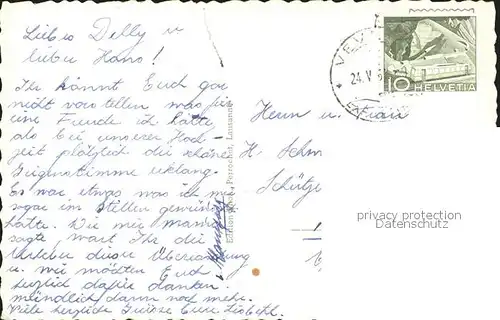 Liebes Delly u
lieber Hans!
Ihr könnt Euch gar
nicht vorstellen was für
eine Freude ich hatte
als bei unserer Hoch-
zeit plötzlich die schöne
Geigenstimme erklang.
Es war etwas was ich mir
sogar im Stillen gewünscht
hatte. Wie mir mein
sagte wart Ihr die
Urheber dieser Überraschung
u. wir möchten Euch
herzlich dafür danken.
mündlich dann noch mehr.
Viele herzliche Grüsse Eure
Perrochet, Lausanne
VEVEY
24.V
10
HELVETIA
Herrn u. Frau
H.
privacy protection
Datenschutz